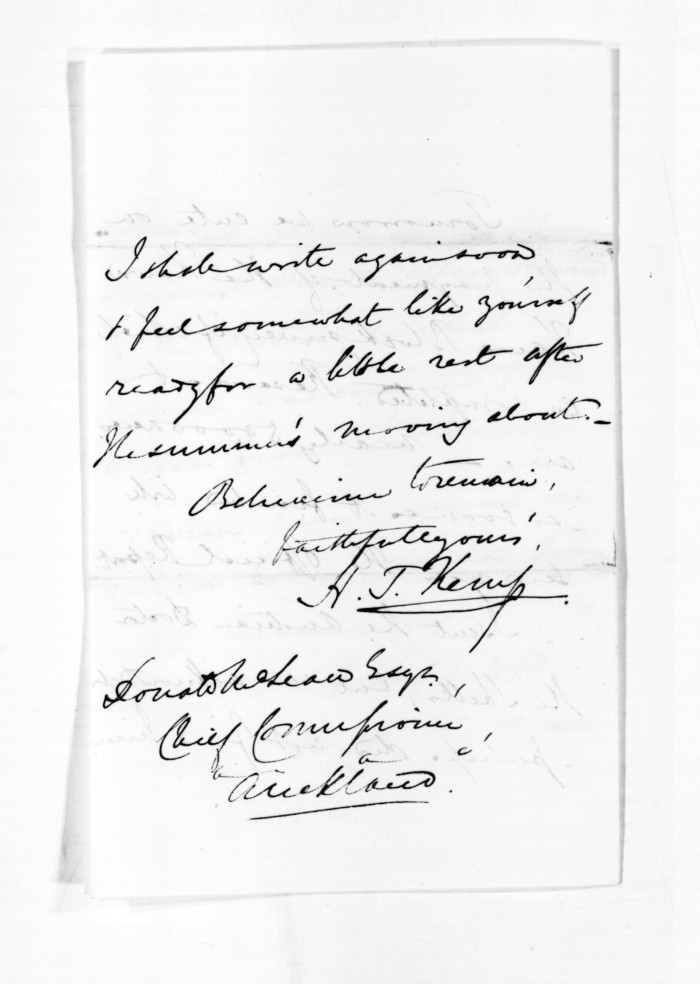 I shall write again soon
& feel somewhat like yourself
ready for a little rest after
the summer's moving about. –
Believe me to remain,
faithfully yours,
H. T. Kemp.
Donald McLean Esqr.,
Chief Commissioner,
Auckland.